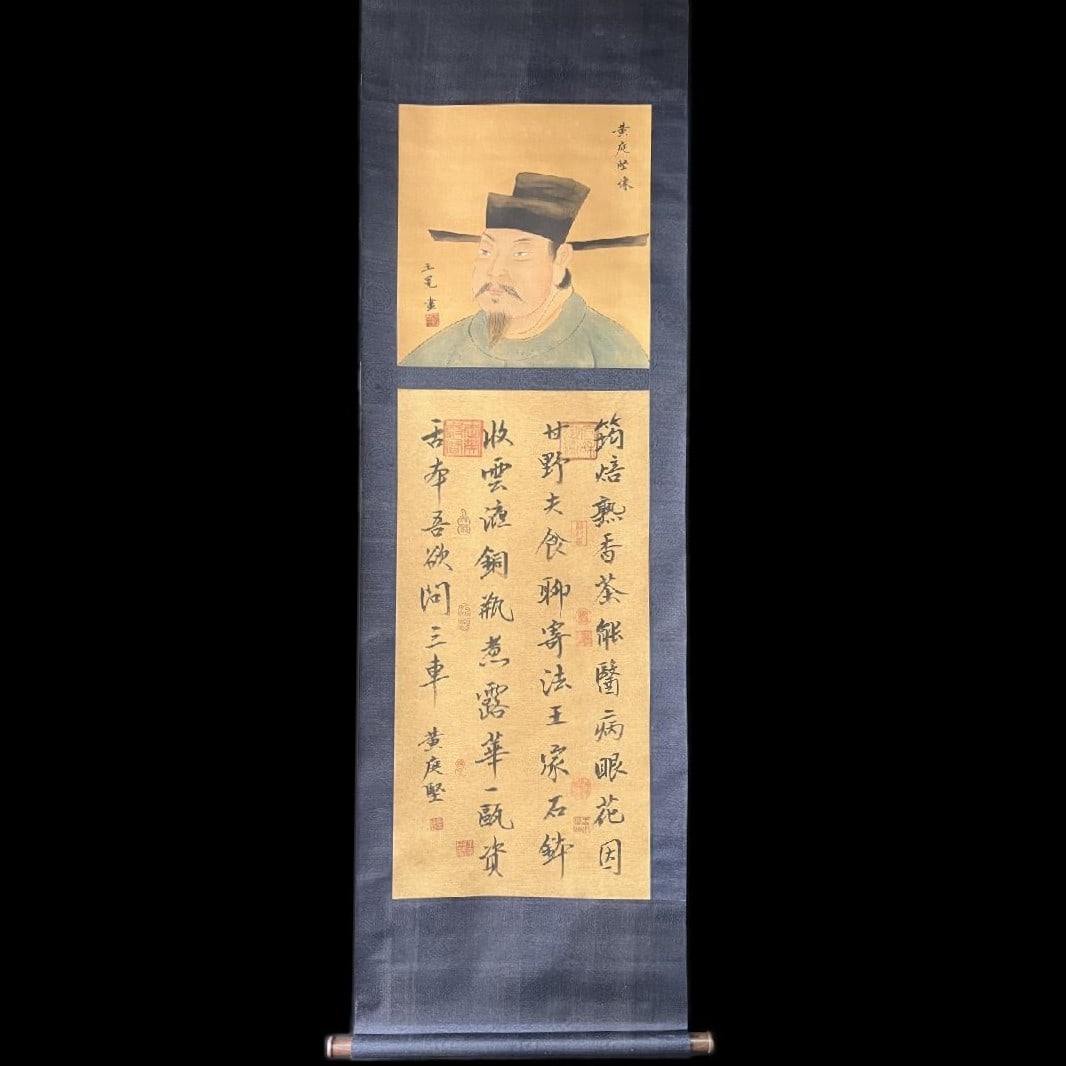 黄庭堅像
王冕畫
筠焙熟香茶能醫病眼花因
甘野夫食聊寄法王家石鉢
收雲液銅瓶煮露華一甌資
舌本吾欲問三車
黄庭堅